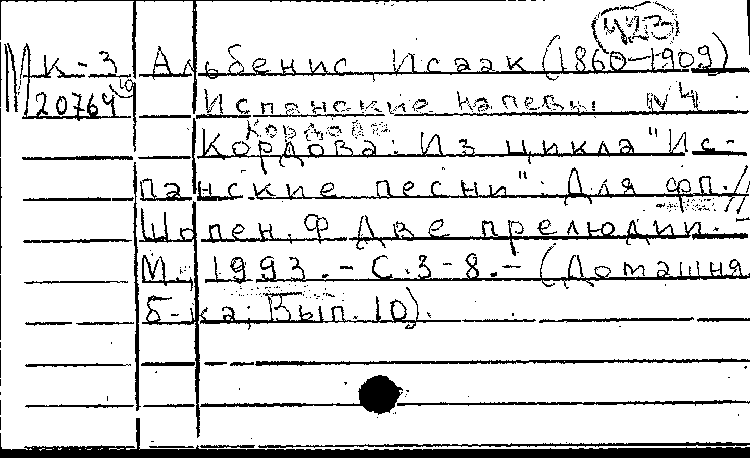 423
МК-3 Альбенис, Исаак (1860-1909)
20764 Испанские напевы N4
Кордова
Кордова: Из цикла "Ис-
панские песни": Для фп.//
Шопен, Ф Две прелюдии.-
М., 1993.- С.3-8.- (Домашня
б-ка; Вып. 10).